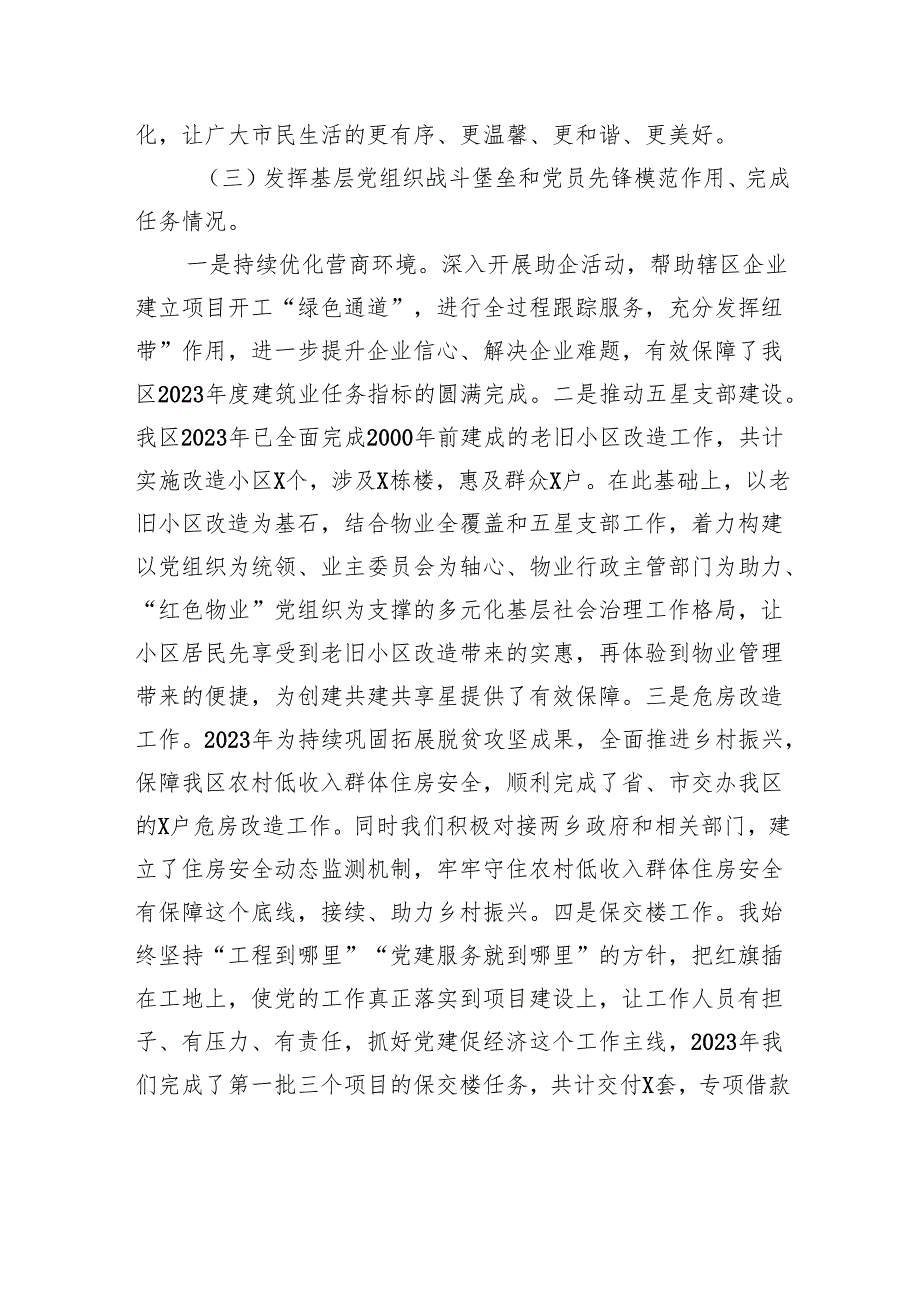 化，让广大市民生活的更有序、更温馨、更和谐、更美好。
（三）发挥基层党组织战斗堡垒和党员先锋模范作用、完成
任务情况。
一是持续优化营商环境。深入开展助企活动，帮助辖区企业
建立项目开工“绿色通道”，进行全过程跟踪服务，充分发挥纽
带”作用，进一步提升企业信心、解决企业难题，有效保障了我
区2023年度建筑业任务指标的圆满完成。二是推动五星支部建设。
我区2023年已全面完成2000年前建成的老旧小区改造工作，共计
实施改造小区X个，涉及X栋楼，惠及群众X户。在此基础上，以老
旧小区改造为基石，结合物业全覆盖和五星支部工作，着力构建
以党组织为统领、业主委员会为轴心、物业行政主管部门为助力、
“红色物业”党组织为支撑的多元化基层社会治理工作格局，让
小区居民先享受到老旧小区改造带来的实惠，再体验到物业管理
带来的便捷，为创建共建共享星提供了有效保障。三是危房改造
工作。2023年为持续巩固拓展脱贫攻坚成果，全面推进乡村振兴，
保障我区农村低收入群体住房安全，顺利完成了省、市交办我区
的X户危房改造工作。同时我们积极对接两乡政府和相关部门，建
立了住房安全动态监测机制，牢牢守住农村低收入群体住房安全
有保障这个底线，接续、助力乡村振兴。四是保交楼工作。我始
终坚持“工程到哪里”“党建服务就到哪里”的方针，把红旗插
在工地上，使党的工作真正落实到项目建设上，让工作人员有担
子、有压力、有责任，抓好党建促经济这个工作主线，2023年我
们完成了第一批三个项目的保交楼任务，共计交付X套，专项借款